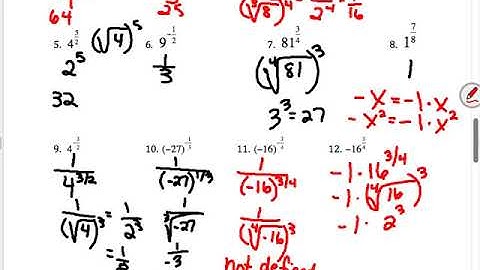 64
2⁵
(³√8)⁴ = 1/2⁴ = 1/16
5. 4^(5/2) (√4)⁵
2⁵
32
6. 9^(-1/2)
1/3
7. 81^(3/4)
(⁴√81)³
3³ = 27
8. 1^(7/8)
1
-x = -1·x
-x² = -1·x²
9. 4^(-3/2)
1/4^(3/2)
1/(√4)³ = 1/2³
= 1/8
10. (-27)^(-1/3)
1/(-27)^(1/3)
1/³√-27
1/-3
11. (-16)^(-3/4)
1/(-16)^(3/4)
1/(⁴√-16)³
not defined
12. -16^(3/4)
-1·16^(3/4)
-1·(⁴√16)³
-1·2³